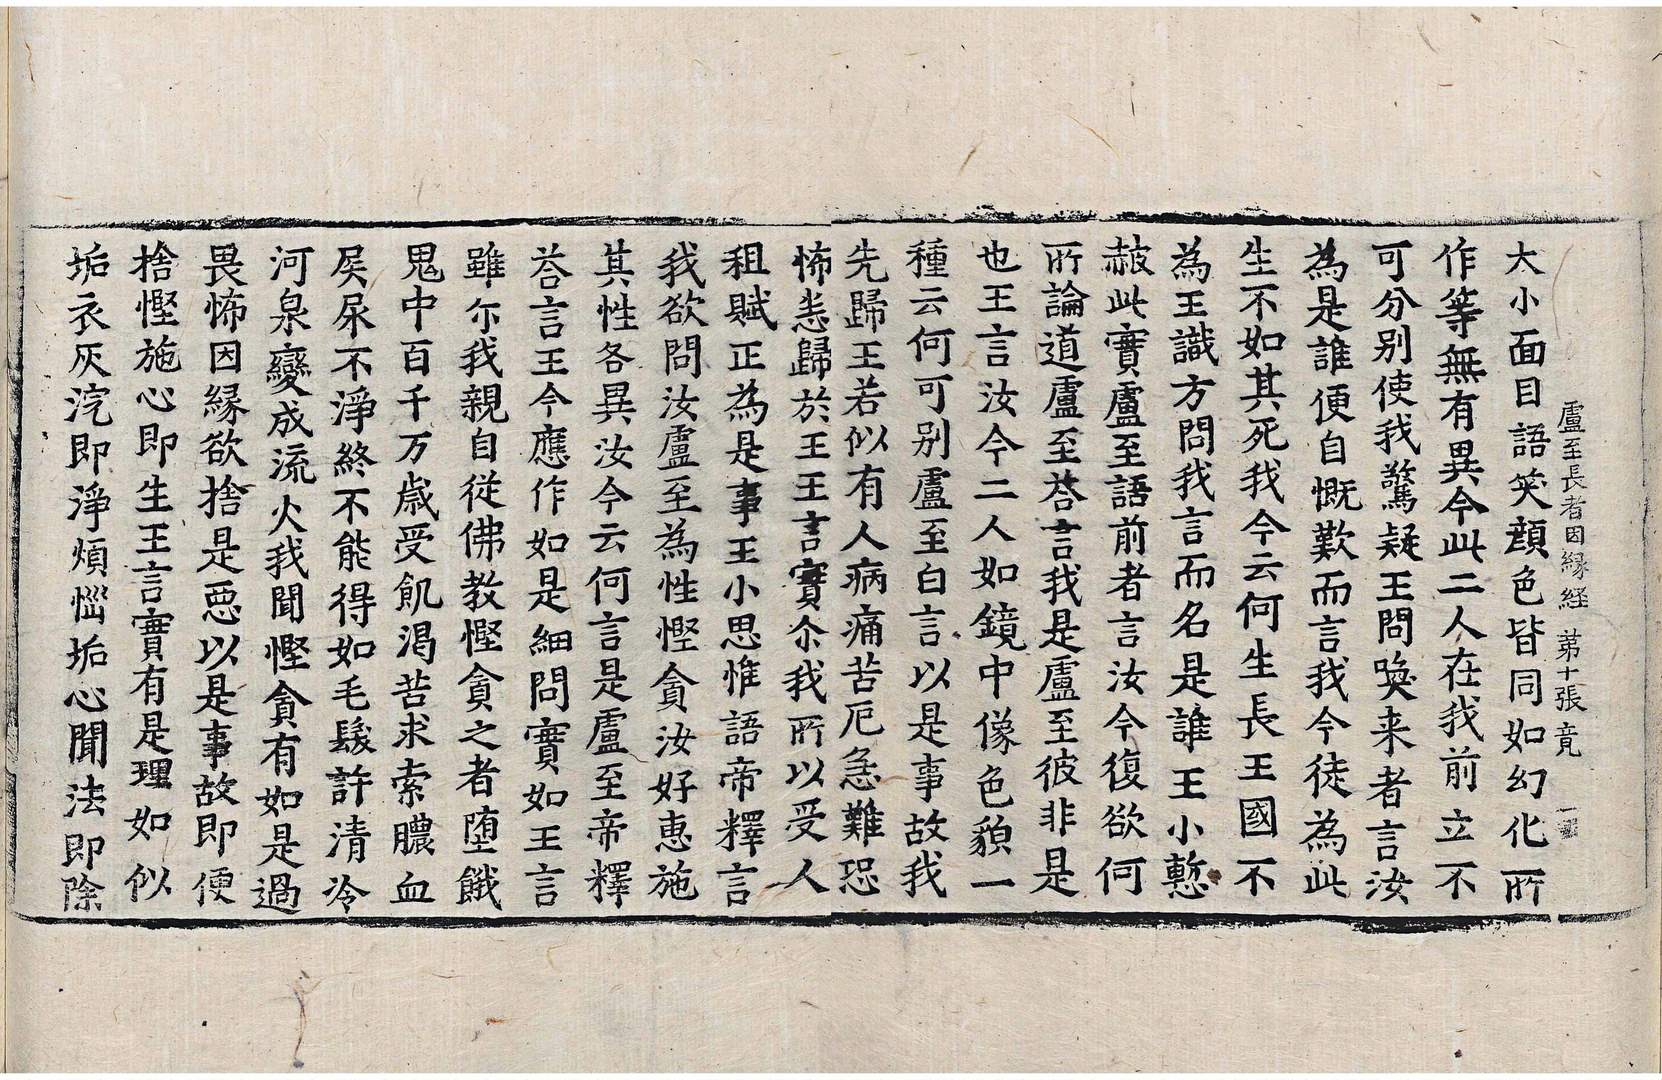 盧至長者因縁経 苐十張 竟
大小面目語笑顔色皆同如幻化所
作等無有異今此二人在我前立不
可分别使我驚疑王問喚来者言汝
為是誰便自慨歎而言我今徒為此
生不如其死我今云何生長王國不
為王識方問我言而名是誰王小慙
赧此實盧至語前者言汝今復欲何
所論道盧至荅言我是盧至彼非是
也王言汝今二人如鏡中像色貌一
種云何可别盧至白言以是事故我
先歸王若似有人病痛苦厄急難恐
怖恙歸於王王言實尒我所以受人
租賦正為是事王小思惟語帝釋言
我欲問汝盧至為性慳貪汝好恵施
其性各異汝今云何言是盧至帝釋
荅言王今應作如是細問實如王言
雖尒我親自従佛教慳貪之者墮餓
鬼中百千万歳受飢渇苦求索膿血
屎尿不淨終不能得如毛髮許清冷
河泉變成流火我聞慳貪有如是過
畏怖因縁欲捨是惡以是事故即便
捨慳施心即生王言實有是理如似
垢衣灰浣即淨煩惱垢心聞法即除